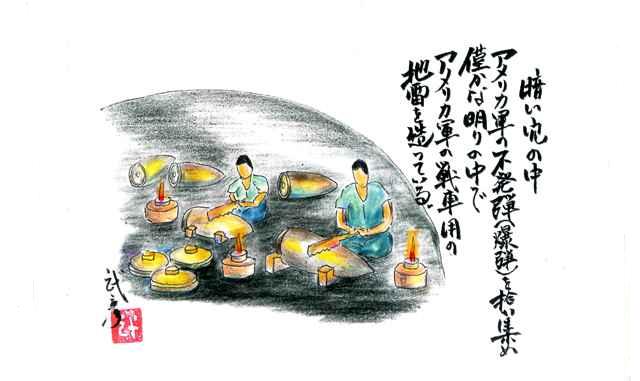 暗い穴の中
アメリカ軍の不発弾(爆弾)を拾い集め
僅かな明りの中で
アメリカ軍の戦車用の
地雷を造っている。